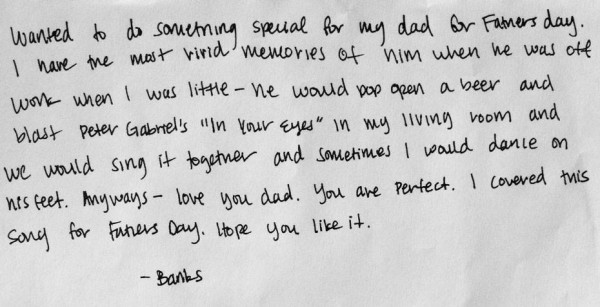 Wanted to do something special for my dad for Fathers day.
I have the most vivid memories of him when he was off
work when I was little - he would pop open a beer and
blast Peter Gabriel's "In Your Eyes" in my living room and
we would sing it together and sometimes I would dance on
his feet. Anyways - love you dad. You are perfect. I covered this
song for Fathers Day. Hope you like it.
- Banks